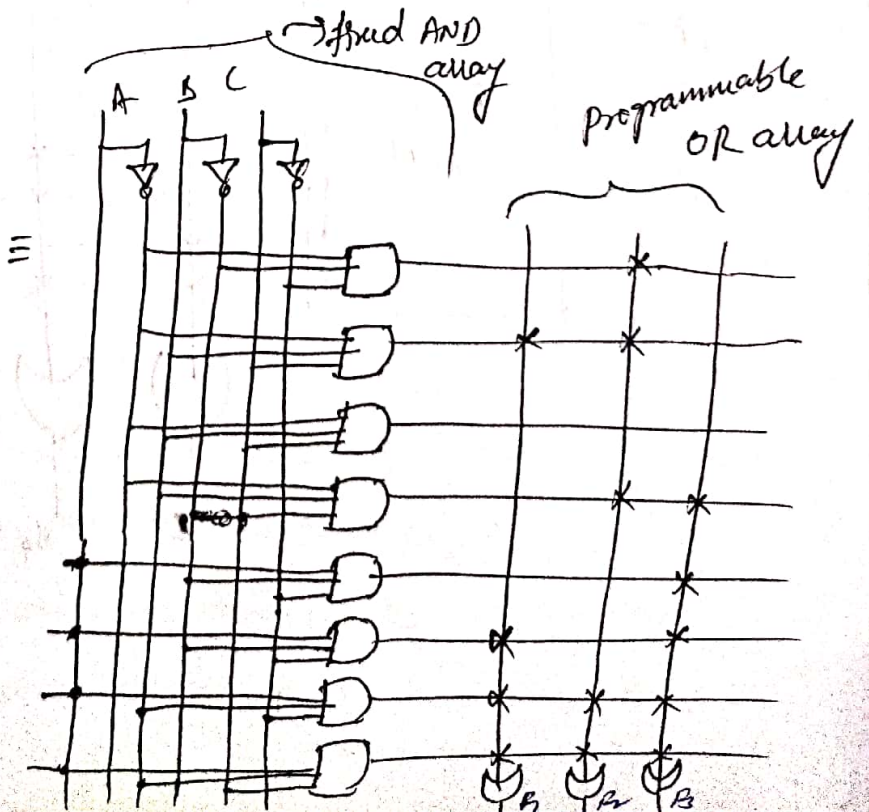 → fixed AND
array
A B C
Programmable
OR array
F1 F2 F3